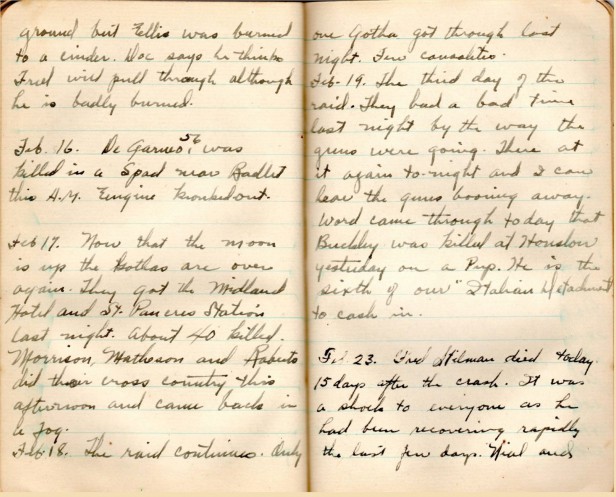 ground but Ellis was burned
to a cinder. Doc says he thinks
Fred will pull through although
he is badly burned.
Feb. 16. De Garmo, 56 was
killed in a Spad near Radlet
this A.M. Engine konked out.
Feb 17. Now that the moon
is up the Gothas are over
again. They got the Midland
Hotel and St. Pancres Station
last night. About 40 killed.
Morrison, Matheson and
did their cross country this
afternoon and came back in
a fog.
Feb. 18. The raid continues. Only
one Gotha got through last
night. Few causalties.
Feb. 19. The third day of the
raid. They had a bad time
last night by the way the
guns were going. There at
it again to-night and I can
hear the guns booming away.
Word came through today that
Buckley was killed at Hounslow
yesterday on a Pup. He is the
sixth of our "Italian Detachment
to cash in.
Feb. 23. Fred Stilman died today
15 days after the crash. It was
a shock to everyone as he
had been recovering rapidly
the last few days. Nial and